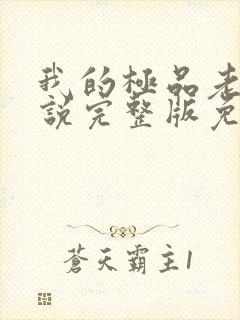 我的極品老
說完整版免
蒼天霸主1